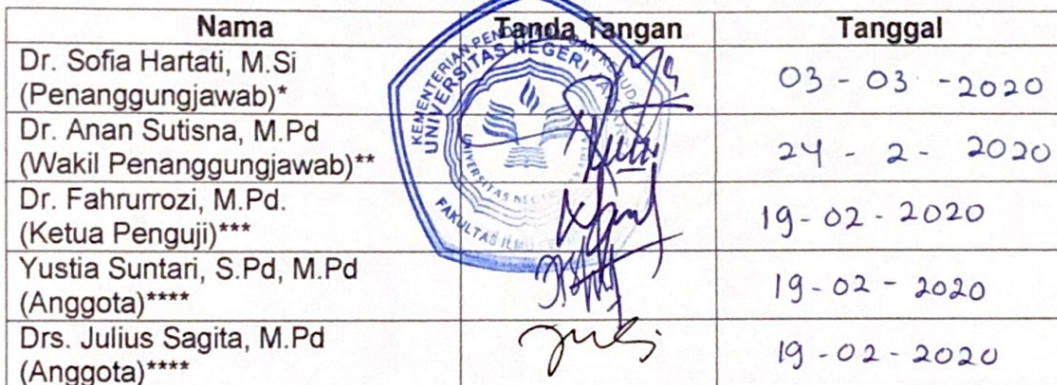 Nama Tanda Tangan Tanggal
Dr. Sofia Hartati, M.Si
(Penanggungjawab)* 03 - 03 - 2020
Dr. Anan Sutisna, M.Pd
(Wakil Penanggungjawab)** 24 - 2 - 2020
Dr. Fahrurrozi, M.Pd.
(Ketua Penguji)*** 19 - 02 - 2020
Yustia Suntari, S.Pd, M.Pd
(Anggota)**** 19 - 02 - 2020
Drs. Julius Sagita, M.Pd
(Anggota)**** 19 - 02 - 2020
KEMENTERIAN
UNIVERSITAS NEGERI
UNIVERSITAS
FAKULTAS ILMU